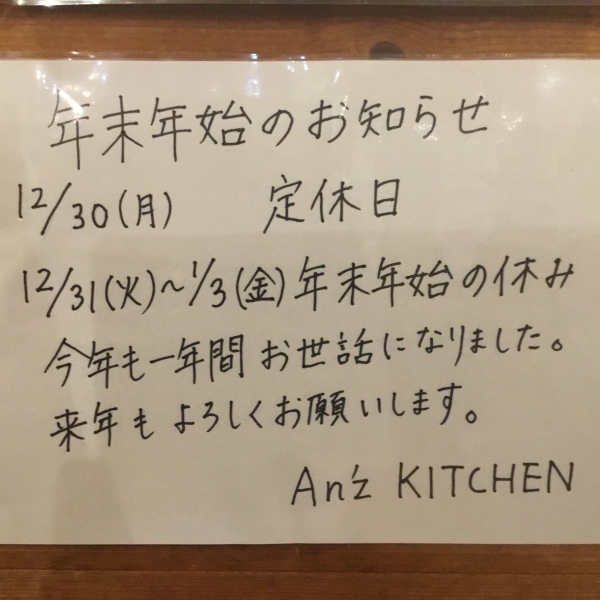 年末年始のお知らせ
12/30(月) 定休日
12/31(火)~1/3(金)年末年始の休み
今年も一年間お世話になりました。
来年もよろしくお願いします。
An'z KITCHEN